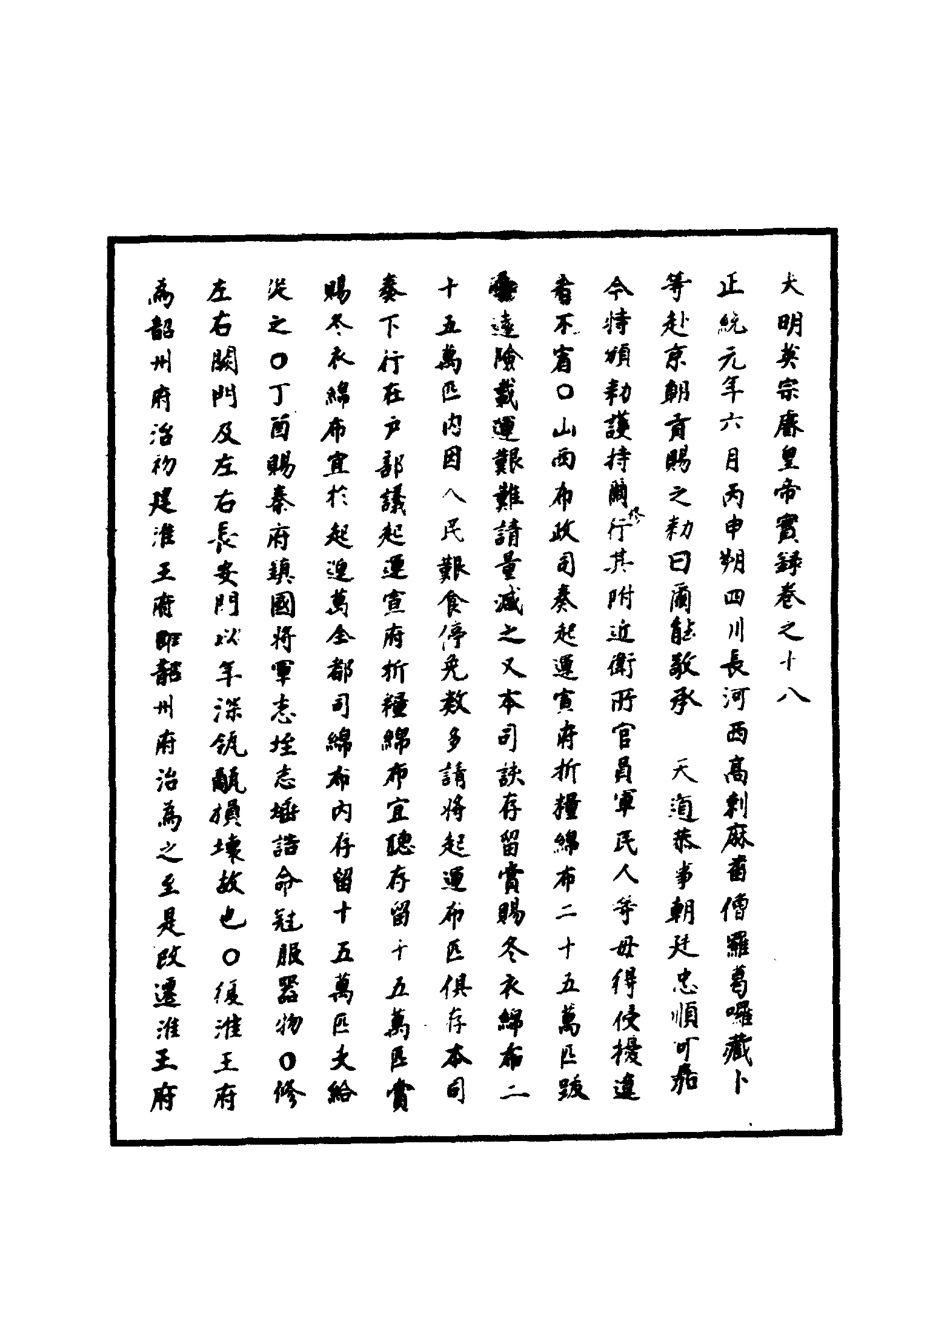 大明英宗睿皇帝實錄卷之十八
正統元年六月丙申朔四川長河西高剌麻畨僧羅葛囉藏卜
等赴京朝貢賜之勑曰爾能敬承　天道恭事朝廷忠順可嘉
今特頒勑護持爾修行其附近衛所官員軍民人等毋得侵擾違
者不宥〇山西布政司奏起運宣府折糧綿布二十五萬匹踰
遠險載運艱難請量減之又本司缺存留賞賜冬衣綿布二
十五萬匹內因人民艱食停免數多請將起運布匹俱存本司
奏下行在戶部議起運宣府折糧綿布宜聽存留十五萬匹賞
賜冬衣綿布宜於起運萬全都司綿布內存留十五萬匹支給
從之〇丁酉賜秦府鎮國將軍志𡌴志墻誥命冠服器物〇修
左右闕門及左右長安門以年深瓴甋損壞故也〇復淮王府
為韶州府治初建淮王府即韶州府治為之至是改遷淮王府